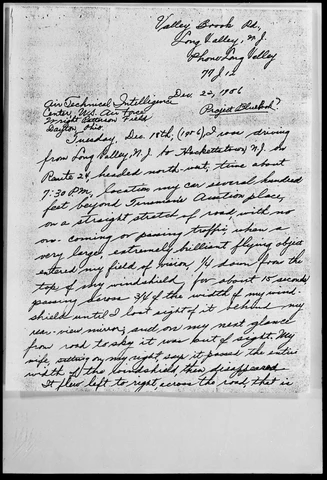 Valley Brook Rd,
Long Valley, N.J.
Phone Long Valley
79 J 12
Dec. 22, 1956
Air Technical Intelligence
Center, U.S. Air Force
Wright Patterson Field
Dayton, Ohio.
Project Bluebook?
Tuesday, Dec. 18th, (1956) I was driving
from Long Valley, N.J. to Hackettstown, N.J. on
Route 24 headed north west, time about
7:30 P.M., location my car several hundred
feet beyond Auction place,
on a straight stretch of road, with no
on-coming or passing traffic when a
very large, extremely brilliant flying object
entered my field of vision, 1/4 down from the
top of my windshield, for about 15 seconds
passing across 3/4 of the width of my wind-
shield until I lost sight of it behind my
rear-view mirror, and on my next glance
from road to sky it was out of sight. My
wife, sitting on my right, says it passed the entire
width of the windshield, then disappeared
It flew left to right, across the road, that is